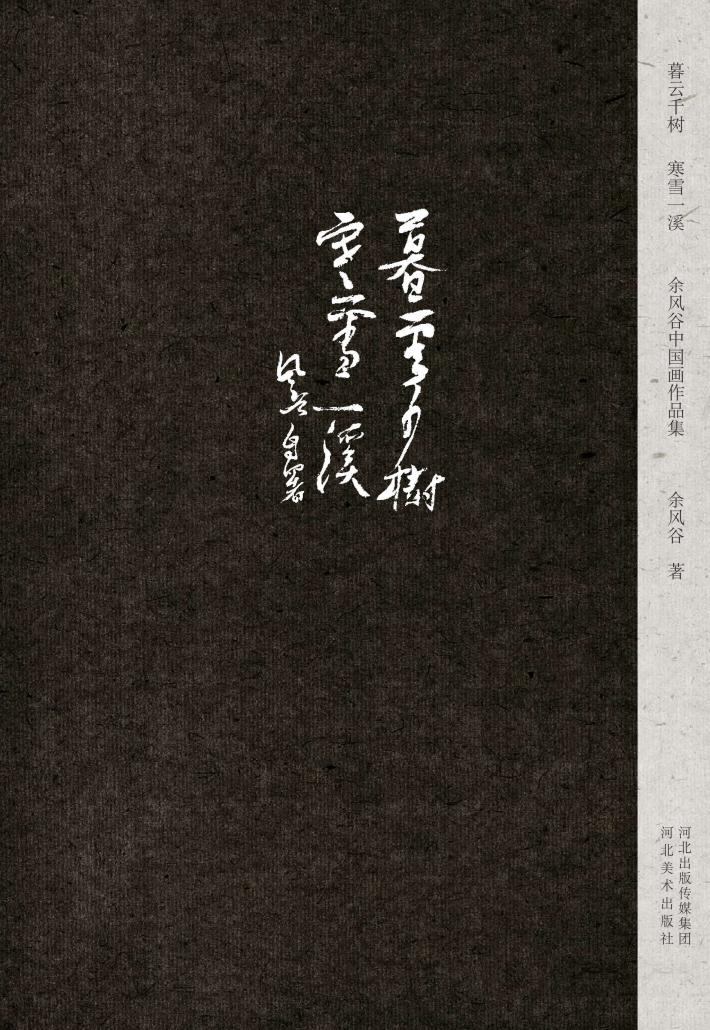 暮雲千樹
寒雪一溪
風谷自署
暮云千树 寒雪一溪 余风谷中国画作品集 余风谷 著
河北出版传媒集团
河北美术出版社